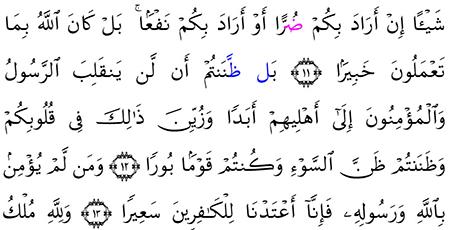 شَيۡـًٔا إِنۡ أَرَادَ بِكُمۡ ضُرًّا أَوۡ أَرَادَ بِكُمۡ نَفۡعَۢاۚ بَلۡ كَانَ ٱللَّهُ بِمَا
تَعۡمَلُونَ خَبِيرَۢا ١١ بَل ظَّنَنتُمۡ أَن لَّن يَنقَلِبَ ٱلرَّسُولُ
وَٱلۡمُؤۡمِنُونَ إِلَىٰٓ أَهۡلِيهِمۡ أَبَدٗا وَزُيِّنَ ذَٰلِكَ فِي قُلُوبِكُمۡ
وَظَنَنتُمۡ ظَنَّ ٱلسَّوۡءِ وَكُنتُمۡ قَوۡمَۢا بُورٗا ١٢ وَمَن لَّمۡ يُؤۡمِنۢ
بِٱللَّهِ وَرَسُولِهِۦ فَإِنَّآ أَعۡتَدۡنَا لِلۡكَٰفِرِينَ سَعِيرٗا ١٣ وَلِلَّهِ مُلۡكُ